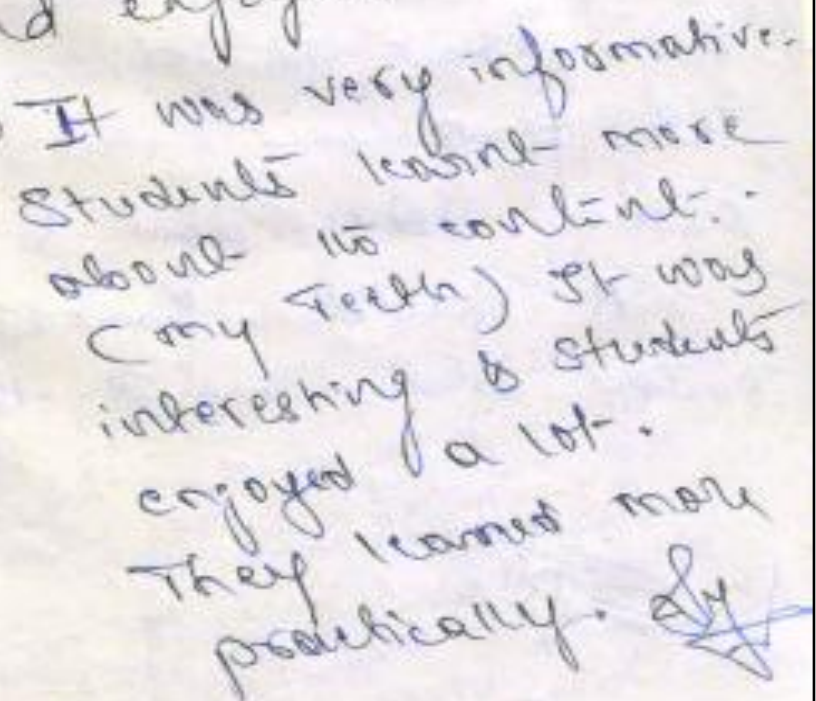 It was very informative.
Students learnt more
about its content.
(my Teeth) It was
interesting & students
enjoyed a lot.
They learned more
practically.